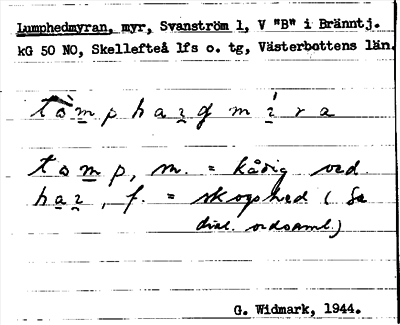 Lumphedmyran, myr, Svanström 1, V "B" i Bränntj.
kG 50 NO, Skellefteå lfs o. tg, Västerbottens län.
m., = kådig ved
f. = skogshed ( Se
dial. ordsaml.)
G. Widmark, 1944.